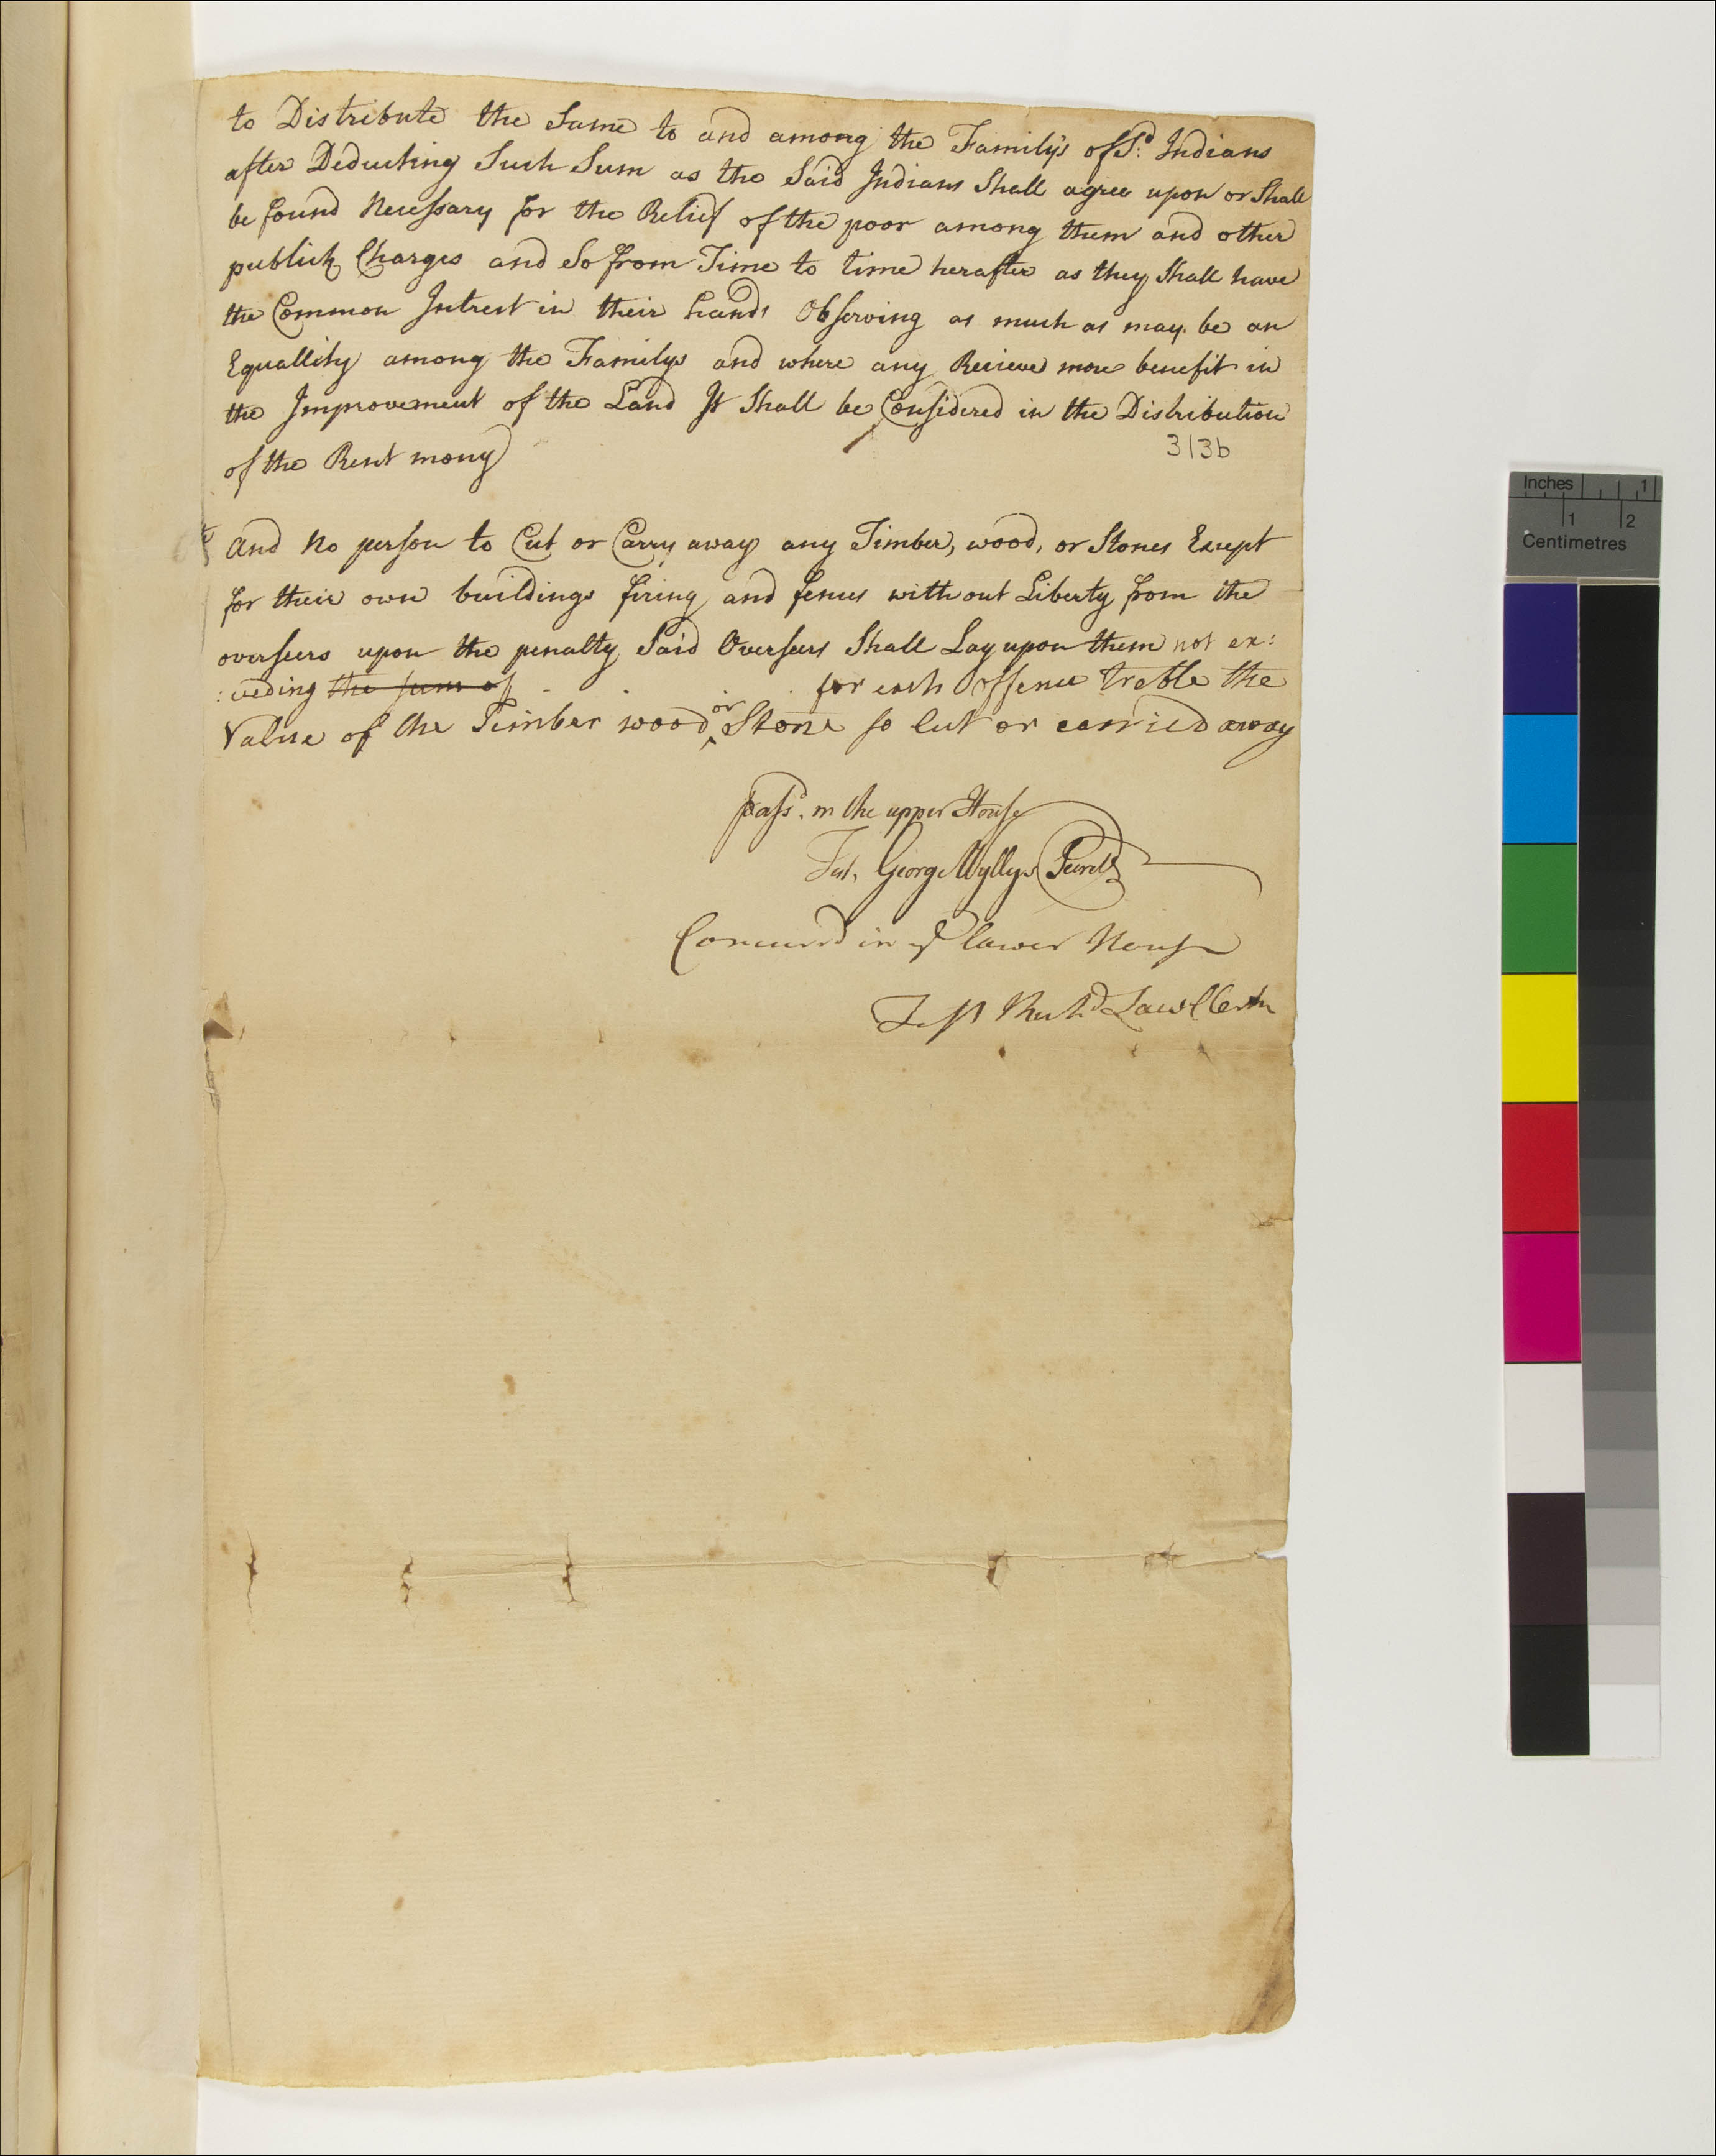 to Distribute the Same to and among the Family's of Sd. Indians
after Deducting Such Sum as the Said Indians Shall agree upon or Shall
be found Necessary for the Relief of the poor among them and other
publick Charges and So from Time to time herafter as they Shall have
the Common Intrest in their hands Observing as much as may be an
Equallity among the Familys and where any Recieve more benefit in
the Improvement of the Land It Shall be Considered in the Distribution
of the Rent mony
313b
And No person to Cut or Carry away any Timber, wood, or Stones Except
for their own buildings firing and fences without Liberty from the
overseers upon the penalty Said Overseers Shall Lay upon them not ex:
:ceeding the sum of for each offence treble the
Value of the Timber wood or Stone so Cut or carried away
Passd. in the upper House
Test. George Wyllys Secrety
Concurrd in ye lower House
Test Richd Law Clerk
Inches 1
1 2
Centimetres